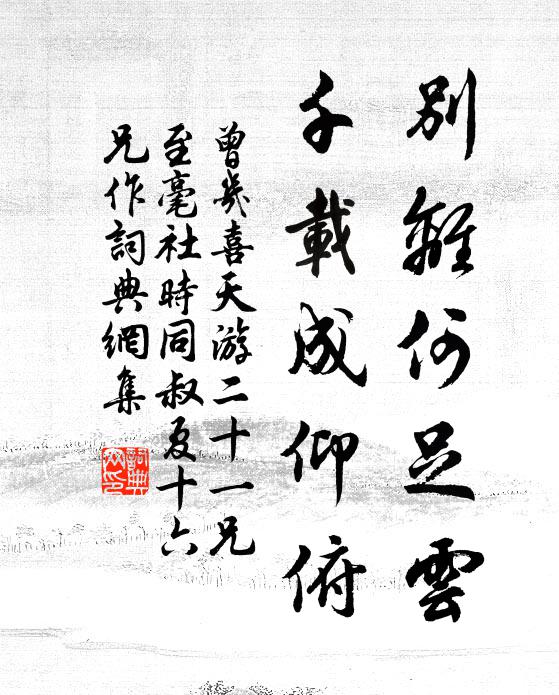 別離何足雲
千載成仰俯
曾幾喜天游二十一兄
至毫社時同叔夏十六
兄作詞典網集
詞典網印